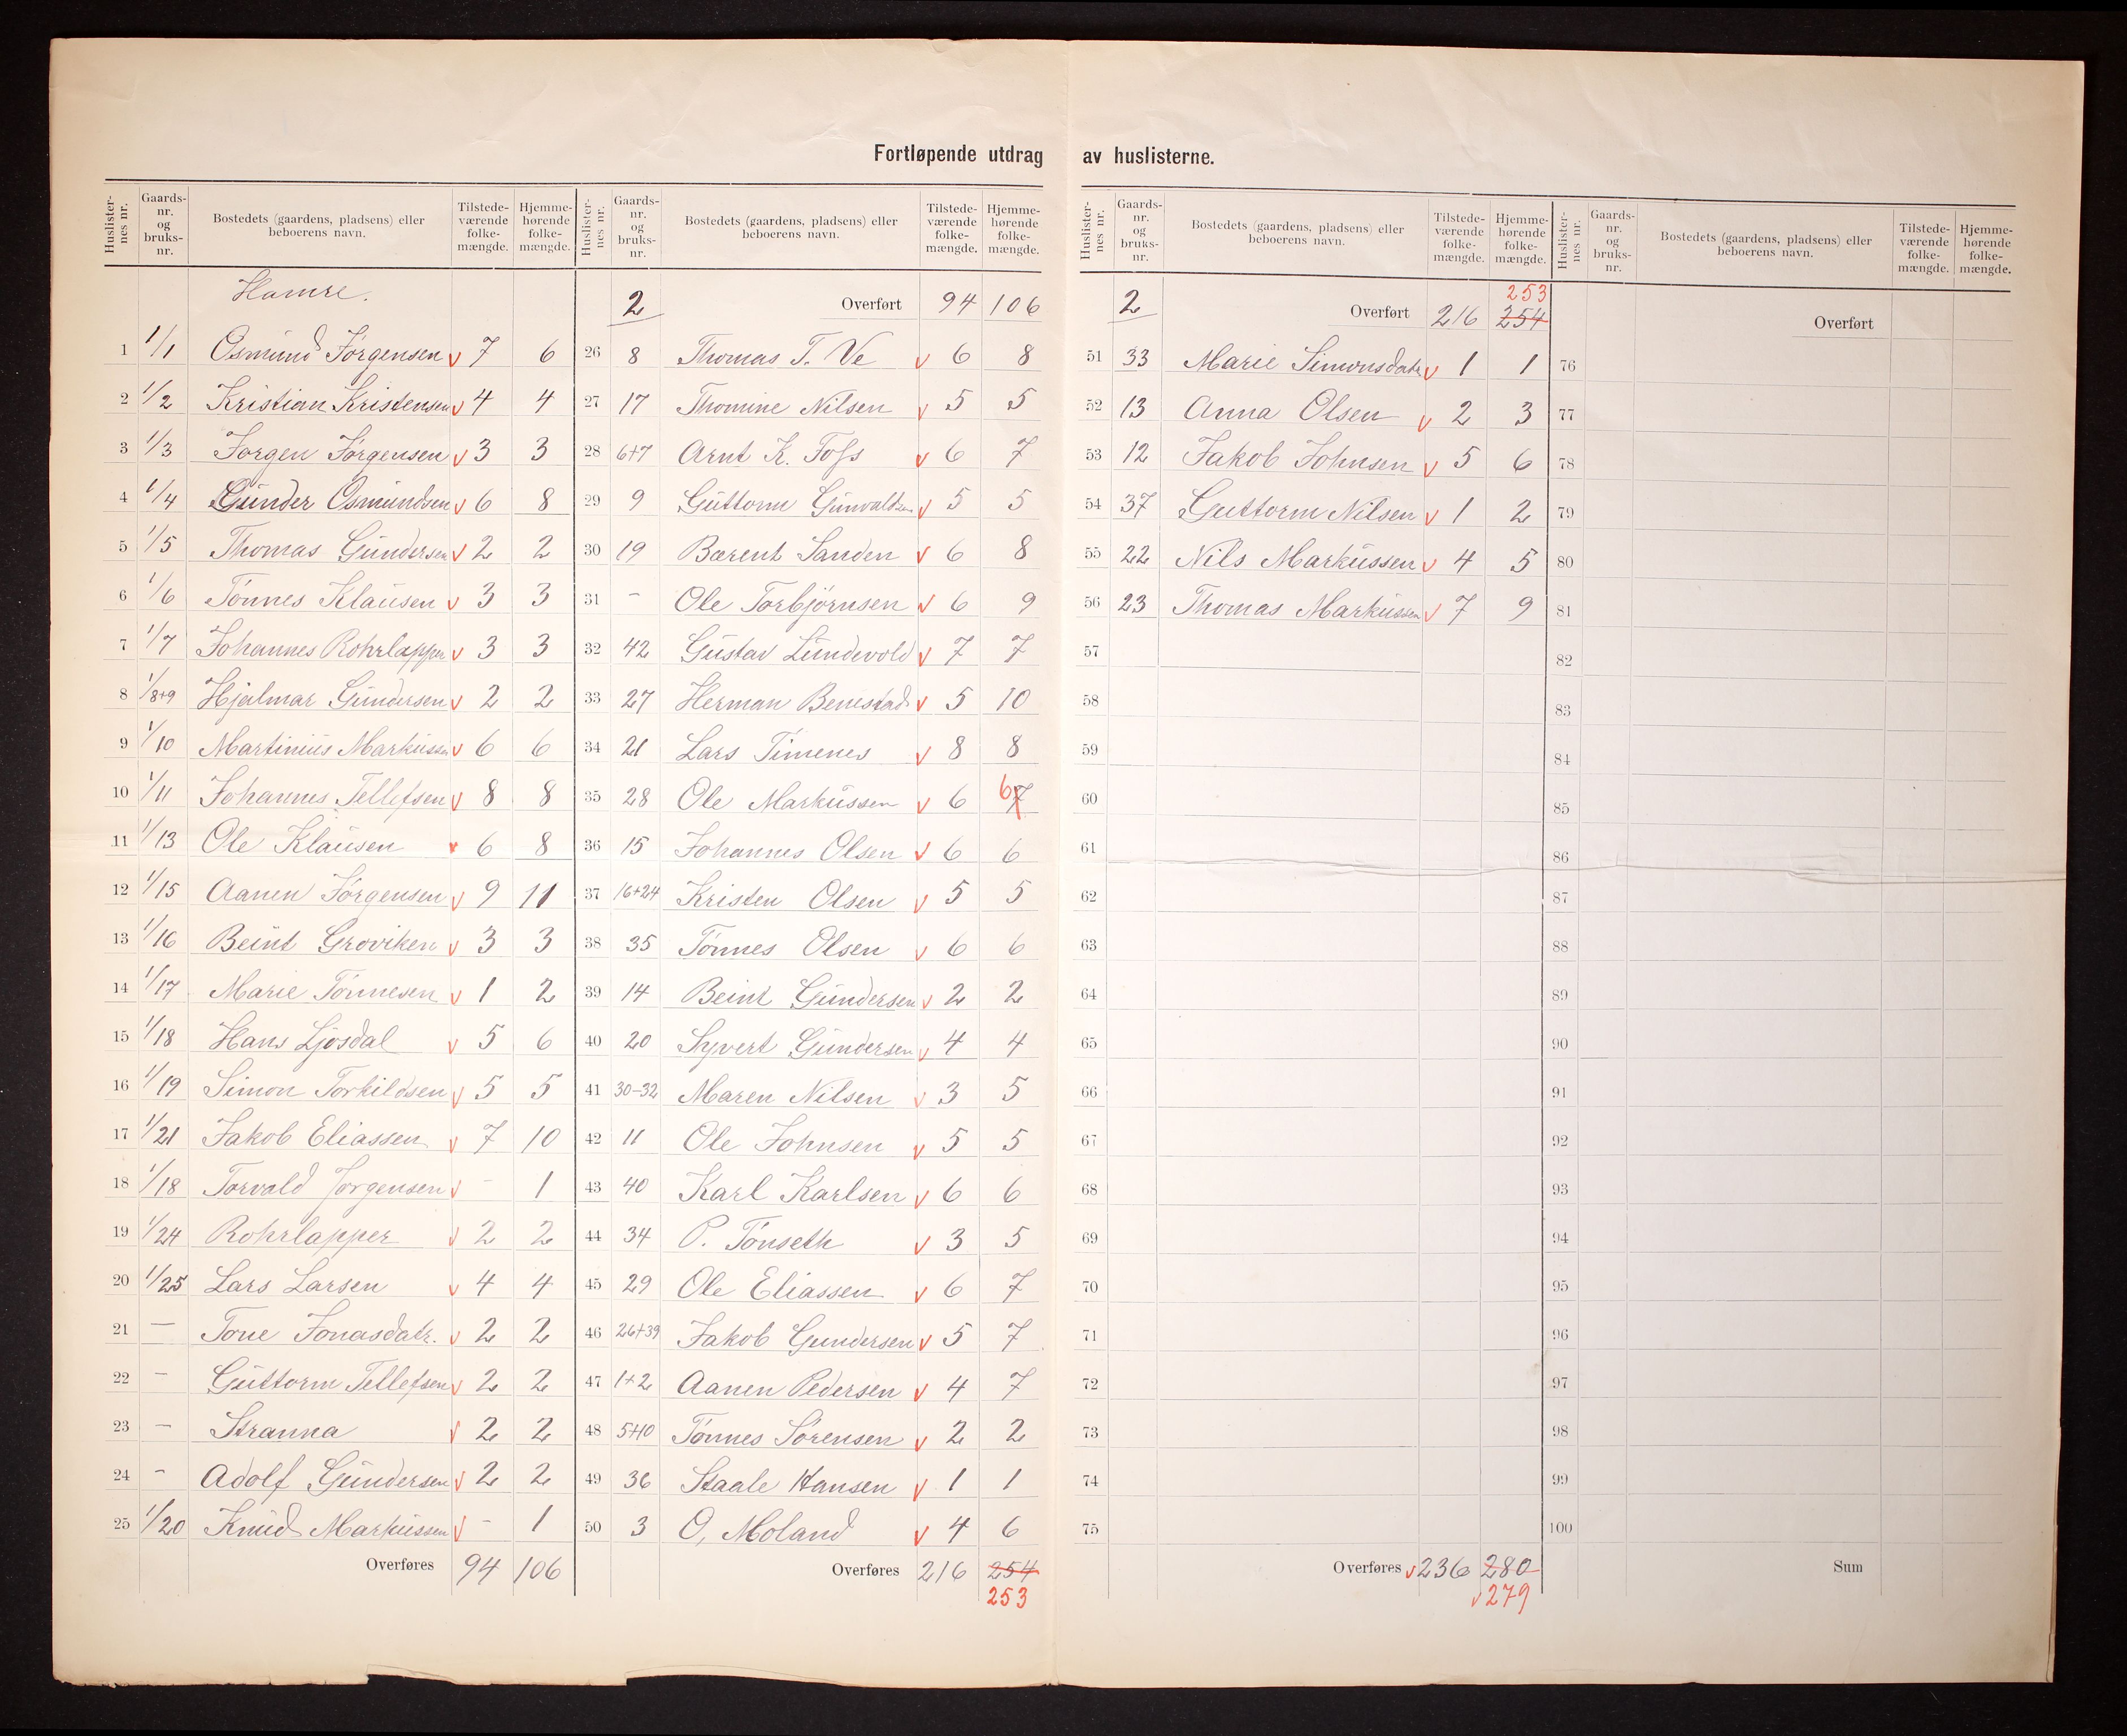 Fortløpende utdrag av huslisterne.
Huslisternes nr. Gaards-nr. og bruks-nr. Bostedets (gaardens, pladsens) eller beboerens navn. Tilstede-værende folke-mængde. Hjemme-hørende folke-mængde.
Hamre.
1 1/1 Osmund Jørgensen v 7 6
2 1/2 Kristian Kristensen v 4 4
3 1/3 Jørgen Jørgensen v 3 3
4 1/4 Gunder Osmundsen v 6 8
5 1/5 Thomas Gundersen v 2 2
6 1/6 Tønnes Klausen v 3 3
7 1/7 Johannes Rohrlapper v 3 3
8 1/8+9 Hjalmar Gundersen v 2 2
9 1/10 Martinius Markussen v 6 6
10 1/11 Johannes Tellefsen v 8 8
11 1/13 Ole Klausen v 6 8
12 1/15 Aanen Jørgensen v 9 11
13 1/16 Beint Groviken v 3 3
14 1/17 Marie Tønnesen v 1 2
15 1/18 Hans Ljosdal v 5 6
16 1/19 Simon Torkildsen v 5 5
17 1/21 Jakob Eliassen v 7 10
18 1/18 Torvald Jørgensen v - 1
19 1/24 Rohrlapper v 2 2
20 1/25 Lars Larsen v 4 4
21 — Tone Jonasdatr. v 2 2
22 - Guttorm Tellefsen v 2 2
23 - Stranna v 2 2
24 - Adolf Gundersen v 2 2
25 1/20 Knud Markussen v - 1
Overføres 94 106
Huslisternes nr. Gaards-nr. og bruks-nr. Bostedets (gaardens, pladsens) eller beboerens navn. Tilstede-værende folke-mængde. Hjemme-hørende folke-mængde.
2 Overført 94 106
26 8 Thomas T. Ve v 6 8
27 17 Thomine Nilsen v 5 5
28 6+7 Arnt K. Foss v 6 7
29 9 Guttorm Gunvaldsen v 5 5
30 19 Bærent Sanden v 6 8
31 - Ole Torbjørnsen v 6 9
32 42 Gustav Lundevold v 7 7
33 27 Herman Benestad v 5 10
34 21 Lars Timenes v 8 8
35 28 Ole Markussen v 6 6 7
36 15 Johannes Olsen v 6 6
37 16+24 Kristen Olsen v 5 5
38 35 Tønnes Olsen v 6 6
39 14 Beint Gundersen v 2 2
40 20 Syvert Gundersen v 4 4
41 30-32 Maren Nilsen v 3 5
42 11 Ole Johnsen v 5 5
43 40 Karl Karlsen v 6 6
44 34 P. Tønseth v 3 5
45 29 Ole Eliassen v 6 7
46 26+39 Jakob Gundersen v 5 7
47 1+2 Aanen Pedersen v 4 7
48 5+10 Tønnes Sørensen v 2 2
49 36 Staale Hansen v 1 1
50 3 O. Moland v 4 6
Overføres 216 254
253
Huslisternes nr. Gaards-nr. og bruks-nr. Bostedets (gaardens, pladsens) eller beboerens navn. Tilstede-værende folke-mængde. Hjemme-hørende folke-mængde.
253
2 Overført 216 254
51 33 Marie Simonsdatr v 1 1
52 13 Anna Olsen v 2 3
53 12 Jakob Johnsen v 5 6
54 37 Guttorm Nilsen v 1 2
55 22 Nils Markussen v 4 5
56 23 Thomas Markussen v 7 9
57
58
59
60
61
62
63
64
65
66
67
68
69
70
71
72
73
74
75
Overføres v 236 280
v 279
Huslisternes nr. Gaards-nr. og bruks-nr. Bostedets (gaardens, pladsens) eller beboerens navn. Tilstede-værende folke-mængde. Hjemme-hørende folke-mængde.
Overført
76
77
78
79
80
81
82
83
84
85
86
87
88
89
90
91
92
93
94
95
96
97
98
99
100
Sum